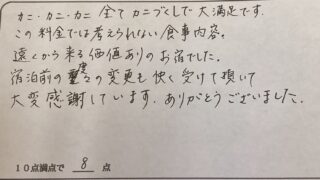 カニ・カニ・カニ 全てカニづくしで大満足です.
この料金では考えられない食事内容。
遠くから来る価値ありのお宿でした。
宿泊前の度々の変更も快く受けて頂いて
大変感謝しています. ありがとうございました.
10点満点で 8 点